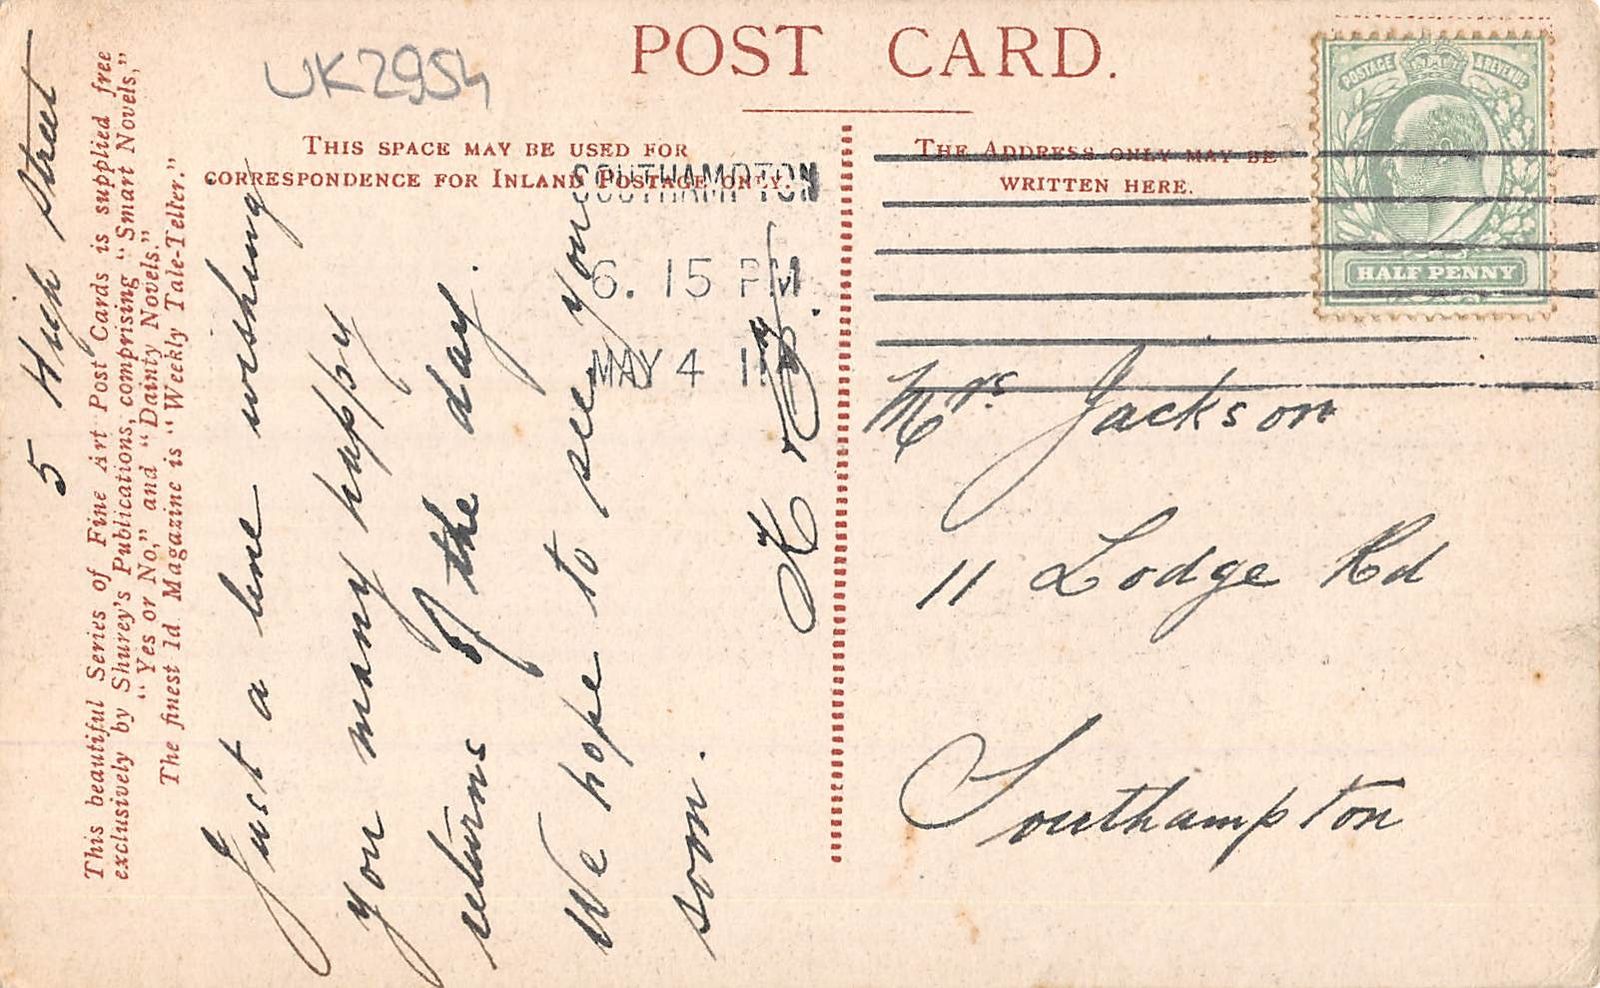 UK2954
POST CARD.
THIS SPACE MAY BE USED FOR
CORRESPONDENCE FOR INLAND POSTAGE ONLY.
THE ADDRESS ONLY MAY BE
WRITTEN HERE.
POSTAGE & REVENUE
HALF PENNY
SOUTHAMPTON
6. 15 PM
MAY 4 11
This beautiful Series of Fine Art Post Cards is supplied free
exclusively by Shurey's Publications, comprising "Smart Novels,"
"Yes or No," and "Dainty Novels."
The finest 1d Magazine is "Weekly Tale-Teller."
5 High Street
Just a line wishing
you many happy
returns of the day.
We hope to see you
soon.
Mrs. Jackson
11 Lodge Rd
Southampton